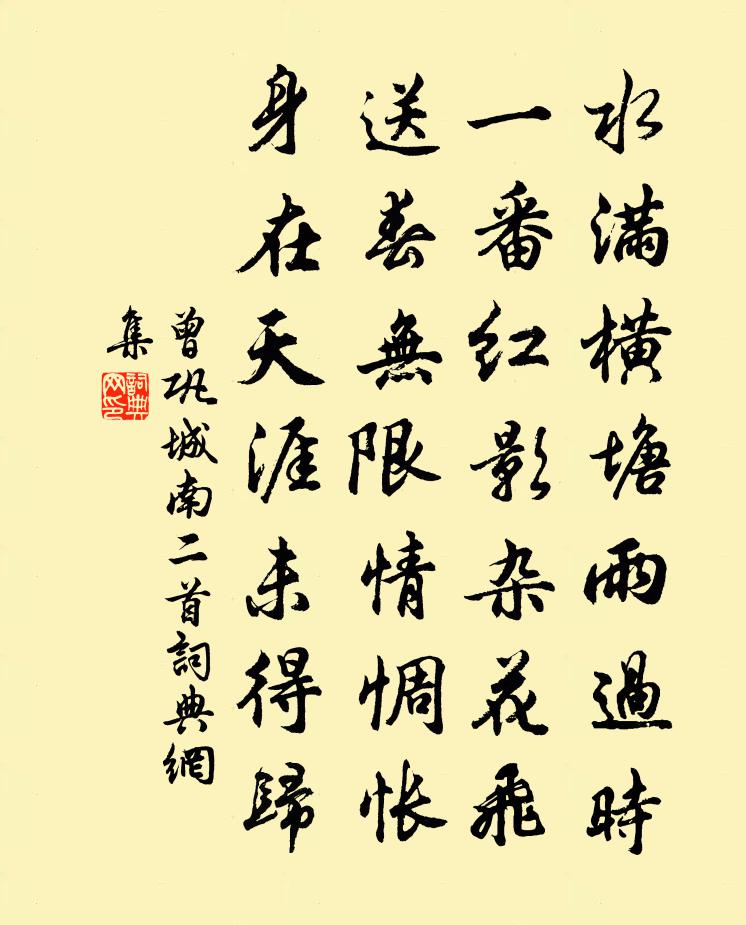 水满橫塘雨過時
一番红影杂花飛
送春無限情惆怅
身在天涯未得歸
曾巩城南二首詞典網
集
詞典
网印